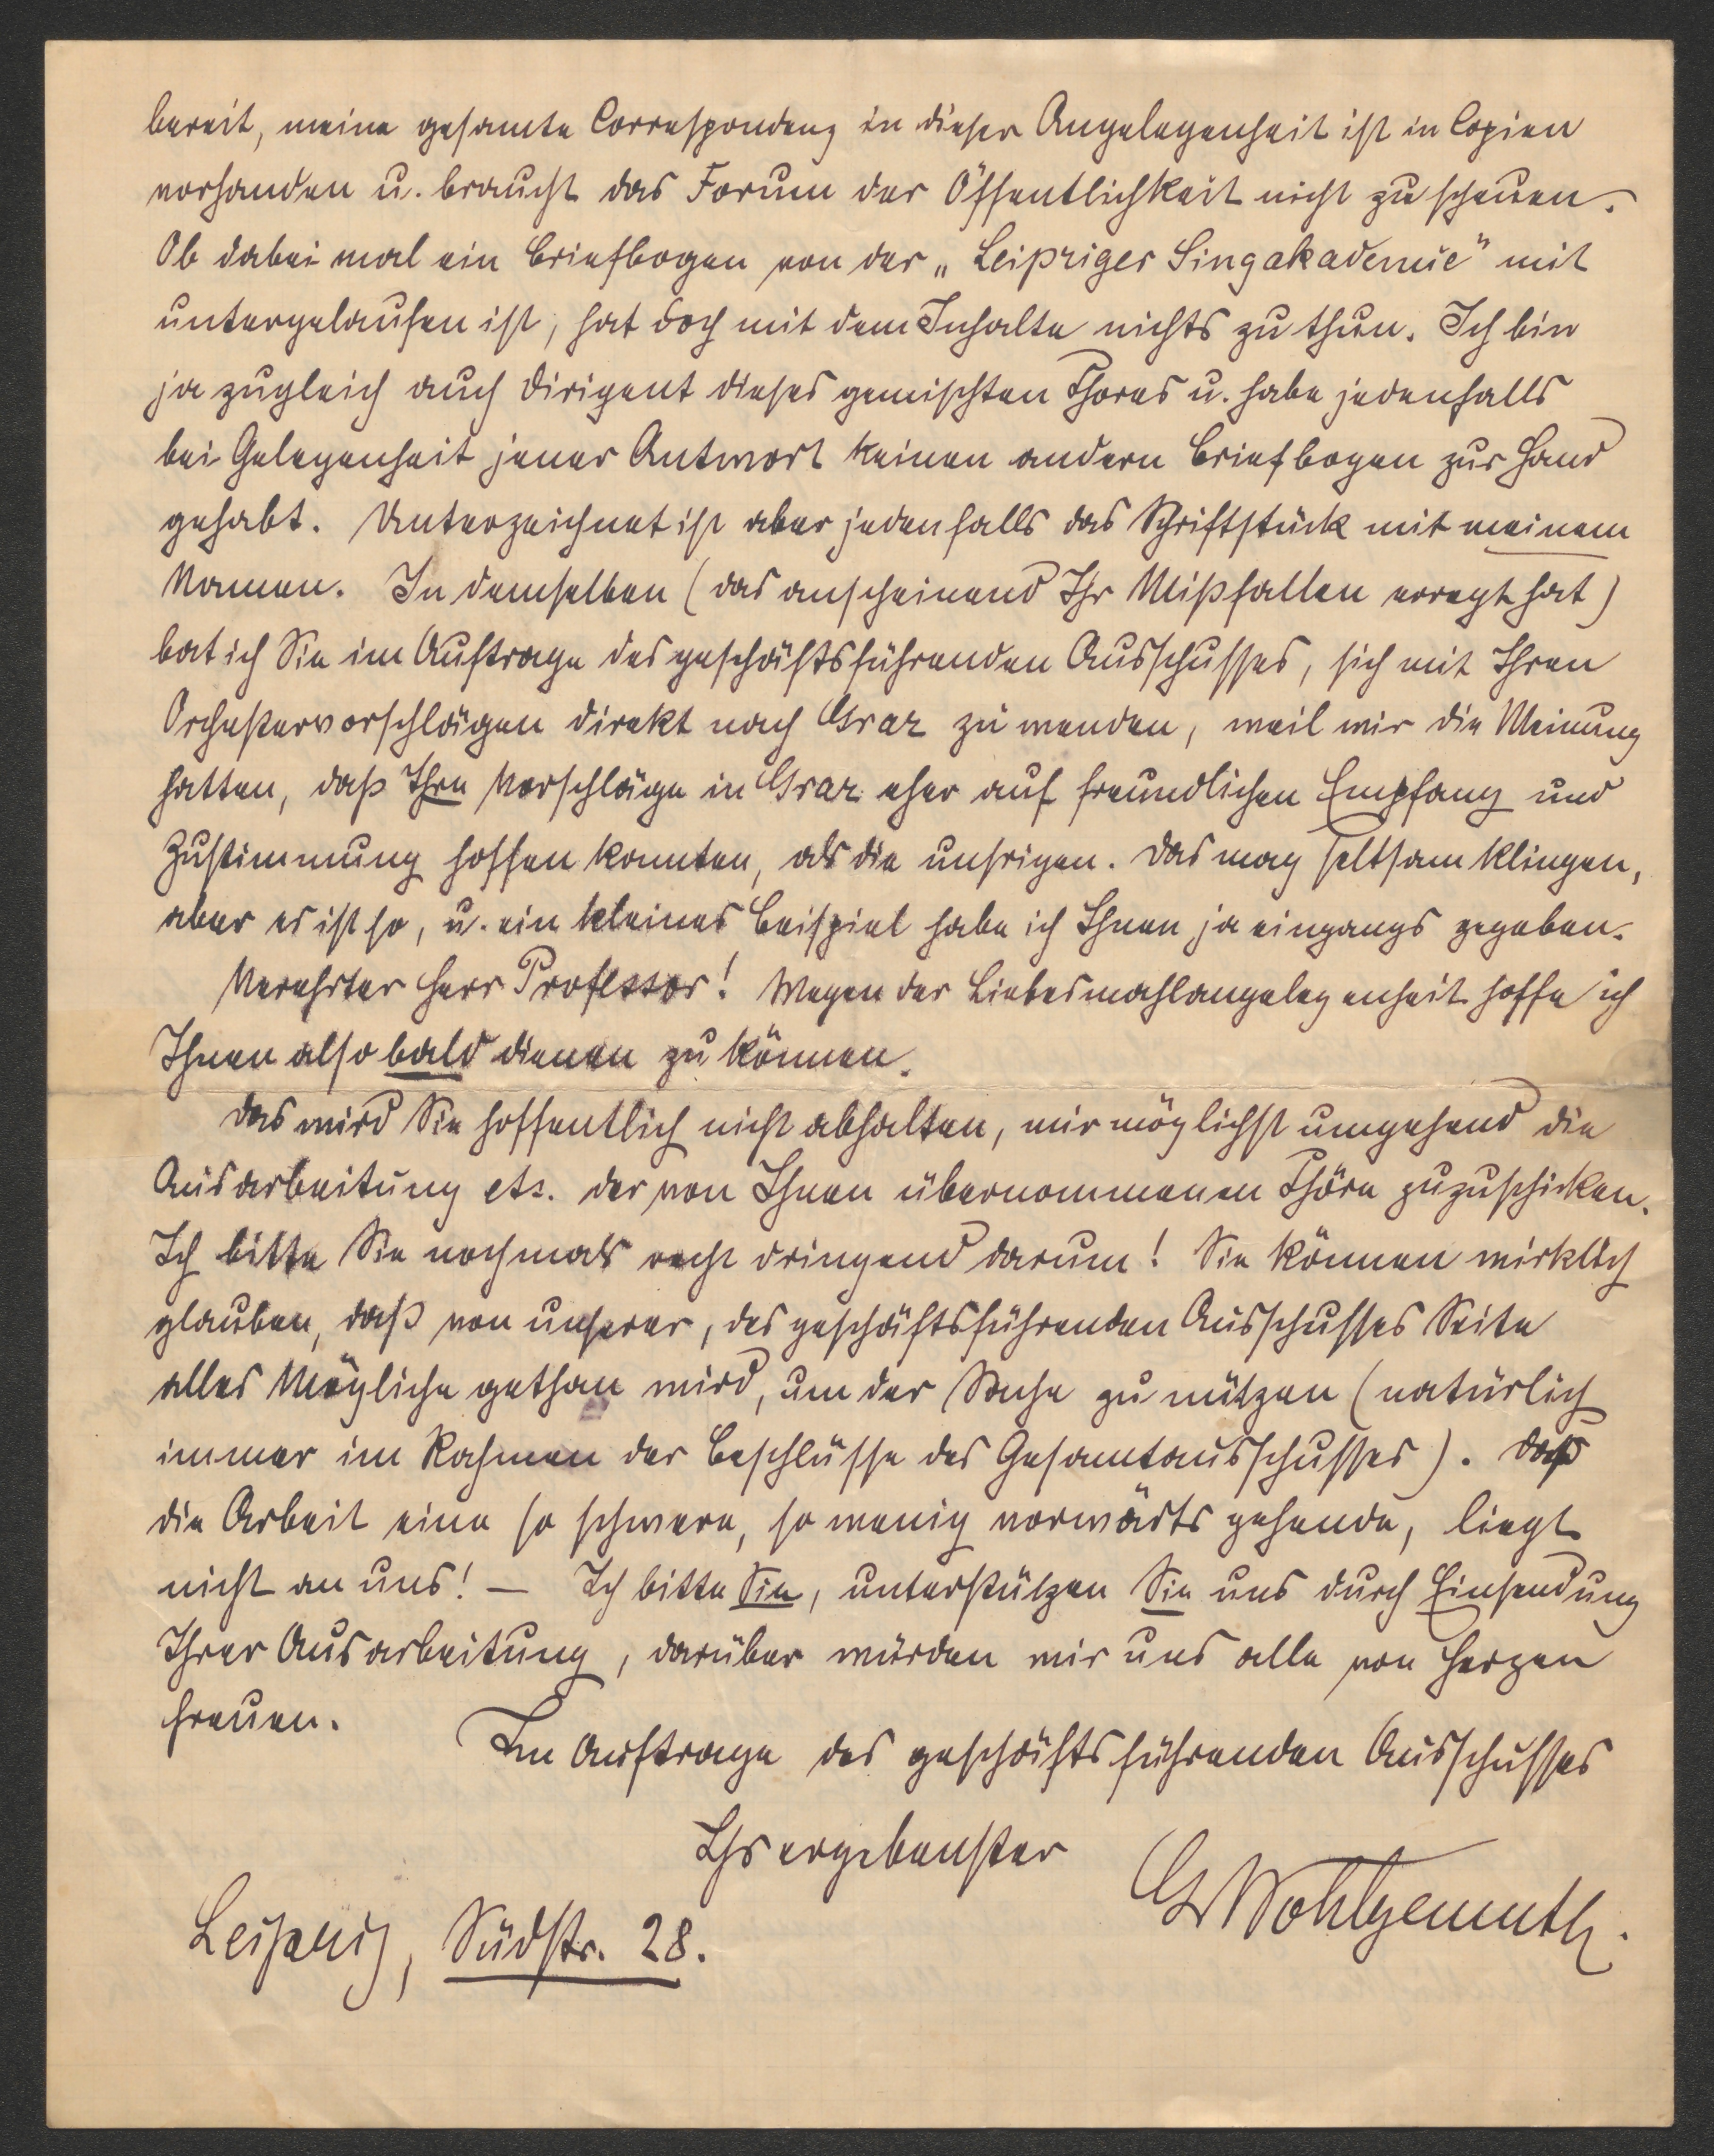 bereit, meine gesamte Correspondenz in dieser Angelegenheit ist in Copien
vorhanden u. braucht das Forum der Öffentlichkeit nicht zu scheuen.
Ob dabei mal ein Briefbogen von der „Leipziger Singakademie" mit
untergelaufen ist, hat doch mit dem Inhalte nichts zu thun. Ich bin
ja zugleich auch Dirigent dieses gemischten Chores u. habe jedenfalls
bei Gelegenheit jener Antwort keinen andern Briefbogen zur Hand
gehabt. Unterzeichnet ist aber jedenfalls das Schriftstück mit meinem
Namen. In demselben (das anscheinend Ihr Mißfallen erregt hat)
bat ich Sie im Auftrage des geschäftsführenden Ausschusses, sich mit Ihren
Orchestervorschlägen direkt nach Graz zu wenden, weil wir die Meinung
hatten, daß Ihre Vorschläge in Graz eher auf freundlichen Empfang und
Zustimmung hoffen konnten, als die unsrigen. Das mag seltsam klingen,
aber es ist so, u. ein kleines Beispiel habe ich Ihnen ja eingangs gegeben.
Verehrter Herr Professor! Wegen der Liebesmahlangelegenheit hoffe ich
Ihnen also bald dienen zu können.
Das wird Sie hoffentlich nicht abhalten, mir möglichst umgehend die
Ausarbeitung etc. der von Ihnen übernommenen Chöre zuzuschicken.
Ich bitte Sie nochmals recht dringend darum! Sie können wirklich
glauben, daß von unserer, des geschäftsführenden Ausschusses Seite
alles Mögliche gethan wird, um der Sache zu nützen (natürlich
immer im Rahmen der Beschlüsse des Gesamtausschusses). Daß
die Arbeit eine so schwere, so wenig vorwärts gehende, liegt
nicht an uns! — Ich bitte Sie, unterstützen Sie uns durch Einsendung
Ihrer Ausarbeitung, darüber würden wir uns alle von Herzen
freuen.
Im Auftrage des geschäftsführenden Ausschusses
Ihr ergebenster
G Wohlgemuth.
Leipzig, Südstr. 28.